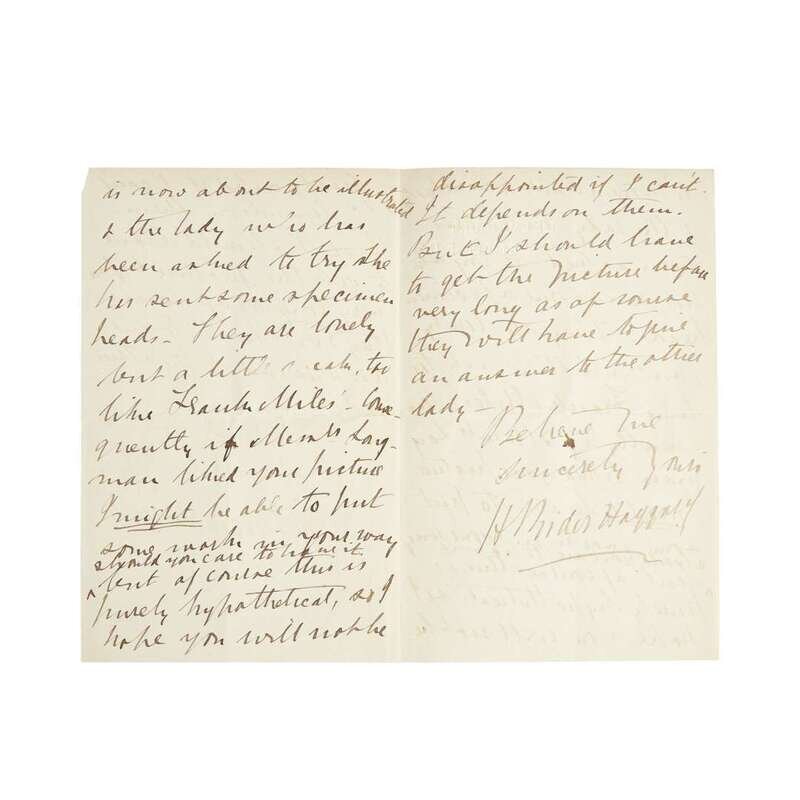 is now about to be illustrated
& the lady who has
been asked to try she
has sent some specimen
heads - They are lovely
but a little weak, too
like Frank Miles' - Conse-
quently if Messrs Long-
man liked your picture
I might be able to put
some work in your way
should you care to have it
^ but of course this is
purely hypothetical, so I
hope you will not be
disappointed if I can't.
It depends on them.
But I should have
to get the picture before
very long as of course
they will have to give
an answer to the other
lady -
Believe me
Sincerely Yours
H Rider Haggard